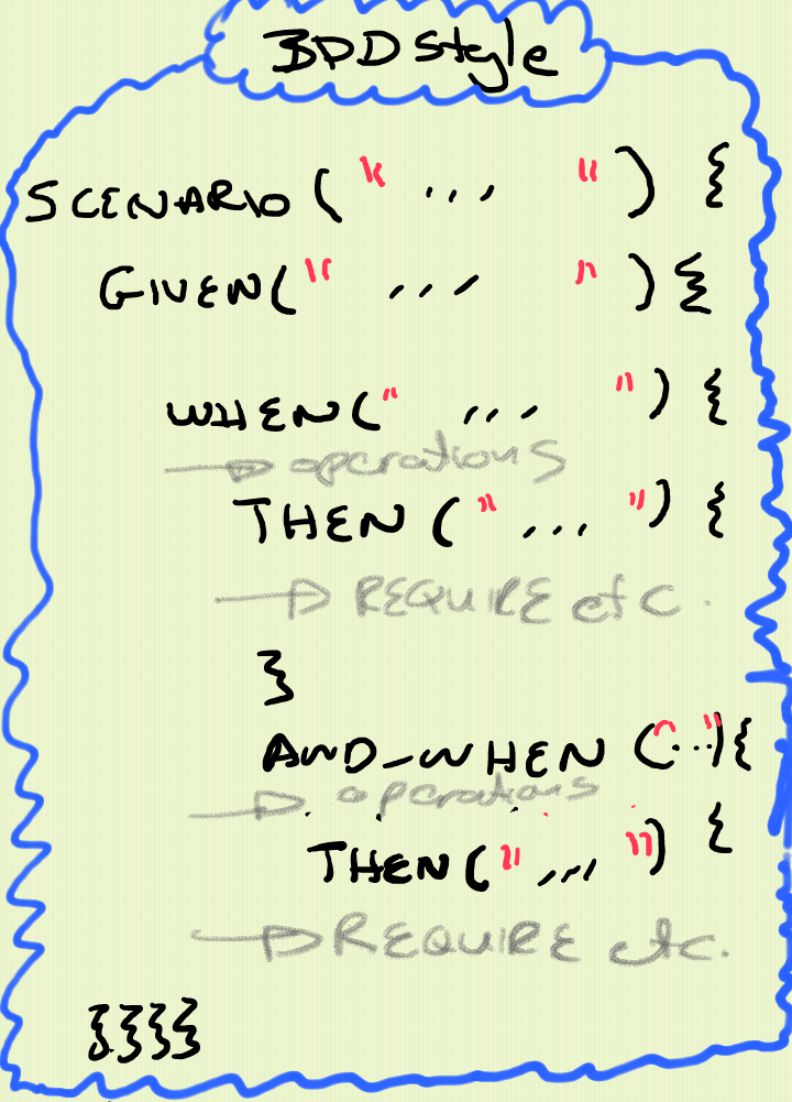 BDD Style
SCENARIO ( " ,,, " ) {
GIVEN( " ,,, " ) {
WHEN( " ,,, " ) {
→ operations
THEN ( " ... " ) {
→ REQUIRE etc.
}
AND_WHEN ("...") {
→ operations
THEN( " ,,, " ) {
→ REQUIRE etc.
}}}}